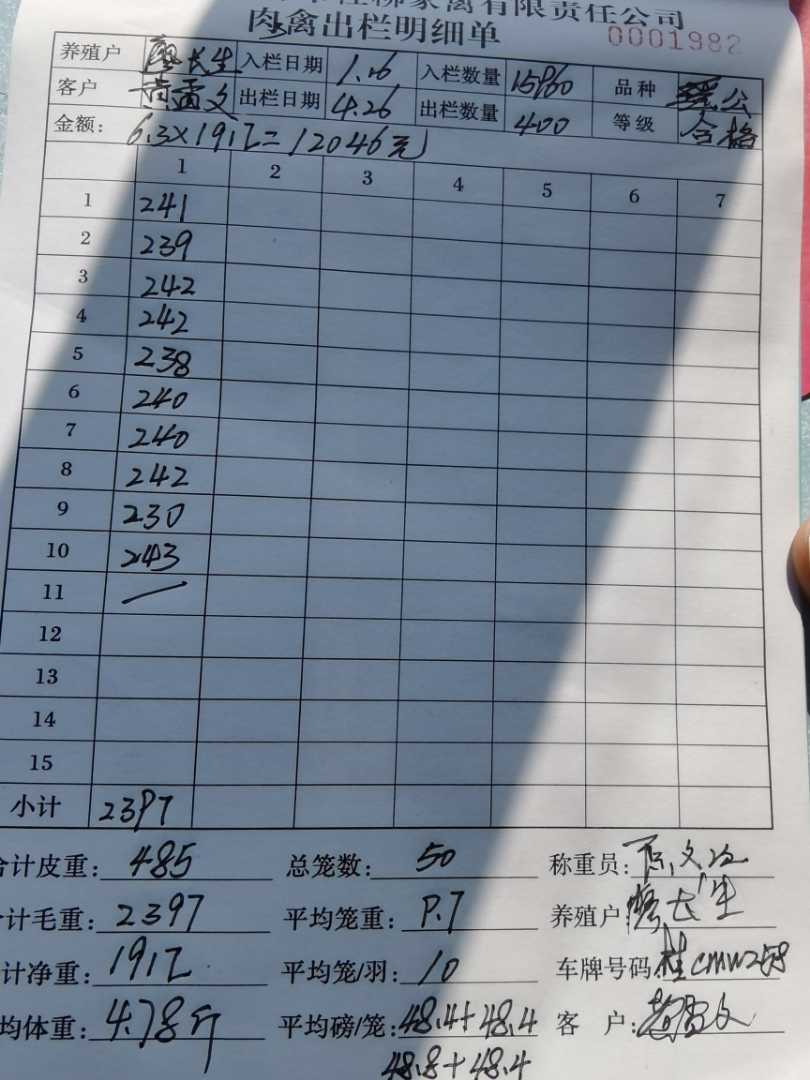 家禽有限责任公司
肉禽出栏明细单 0001982
养殖户 廖长生 入栏日期 1.26 入栏数量 15960 品种 瑶公
客户 黄雷文 出栏日期 4.26 出栏数量 400 等级 合格
金额: 6.3×1912=12046元
1 2 3 4 5 6 7
1 241
2 239
3 242
4 242
5 238
6 240
7 240
8 242
9 230
10 243
11 —
12
13
14
15
小计 2397
合计皮重: 485 总笼数: 50 称重员:
计毛重: 2397 平均笼重: 9.7 养殖户 廖长生
计净重: 1912 平均笼/羽: 10 车牌号码:桂CMW258
均体重: 4.78斤 平均磅/笼: 48.4+48.4 客 户: 黄雷文
48.8+48.4